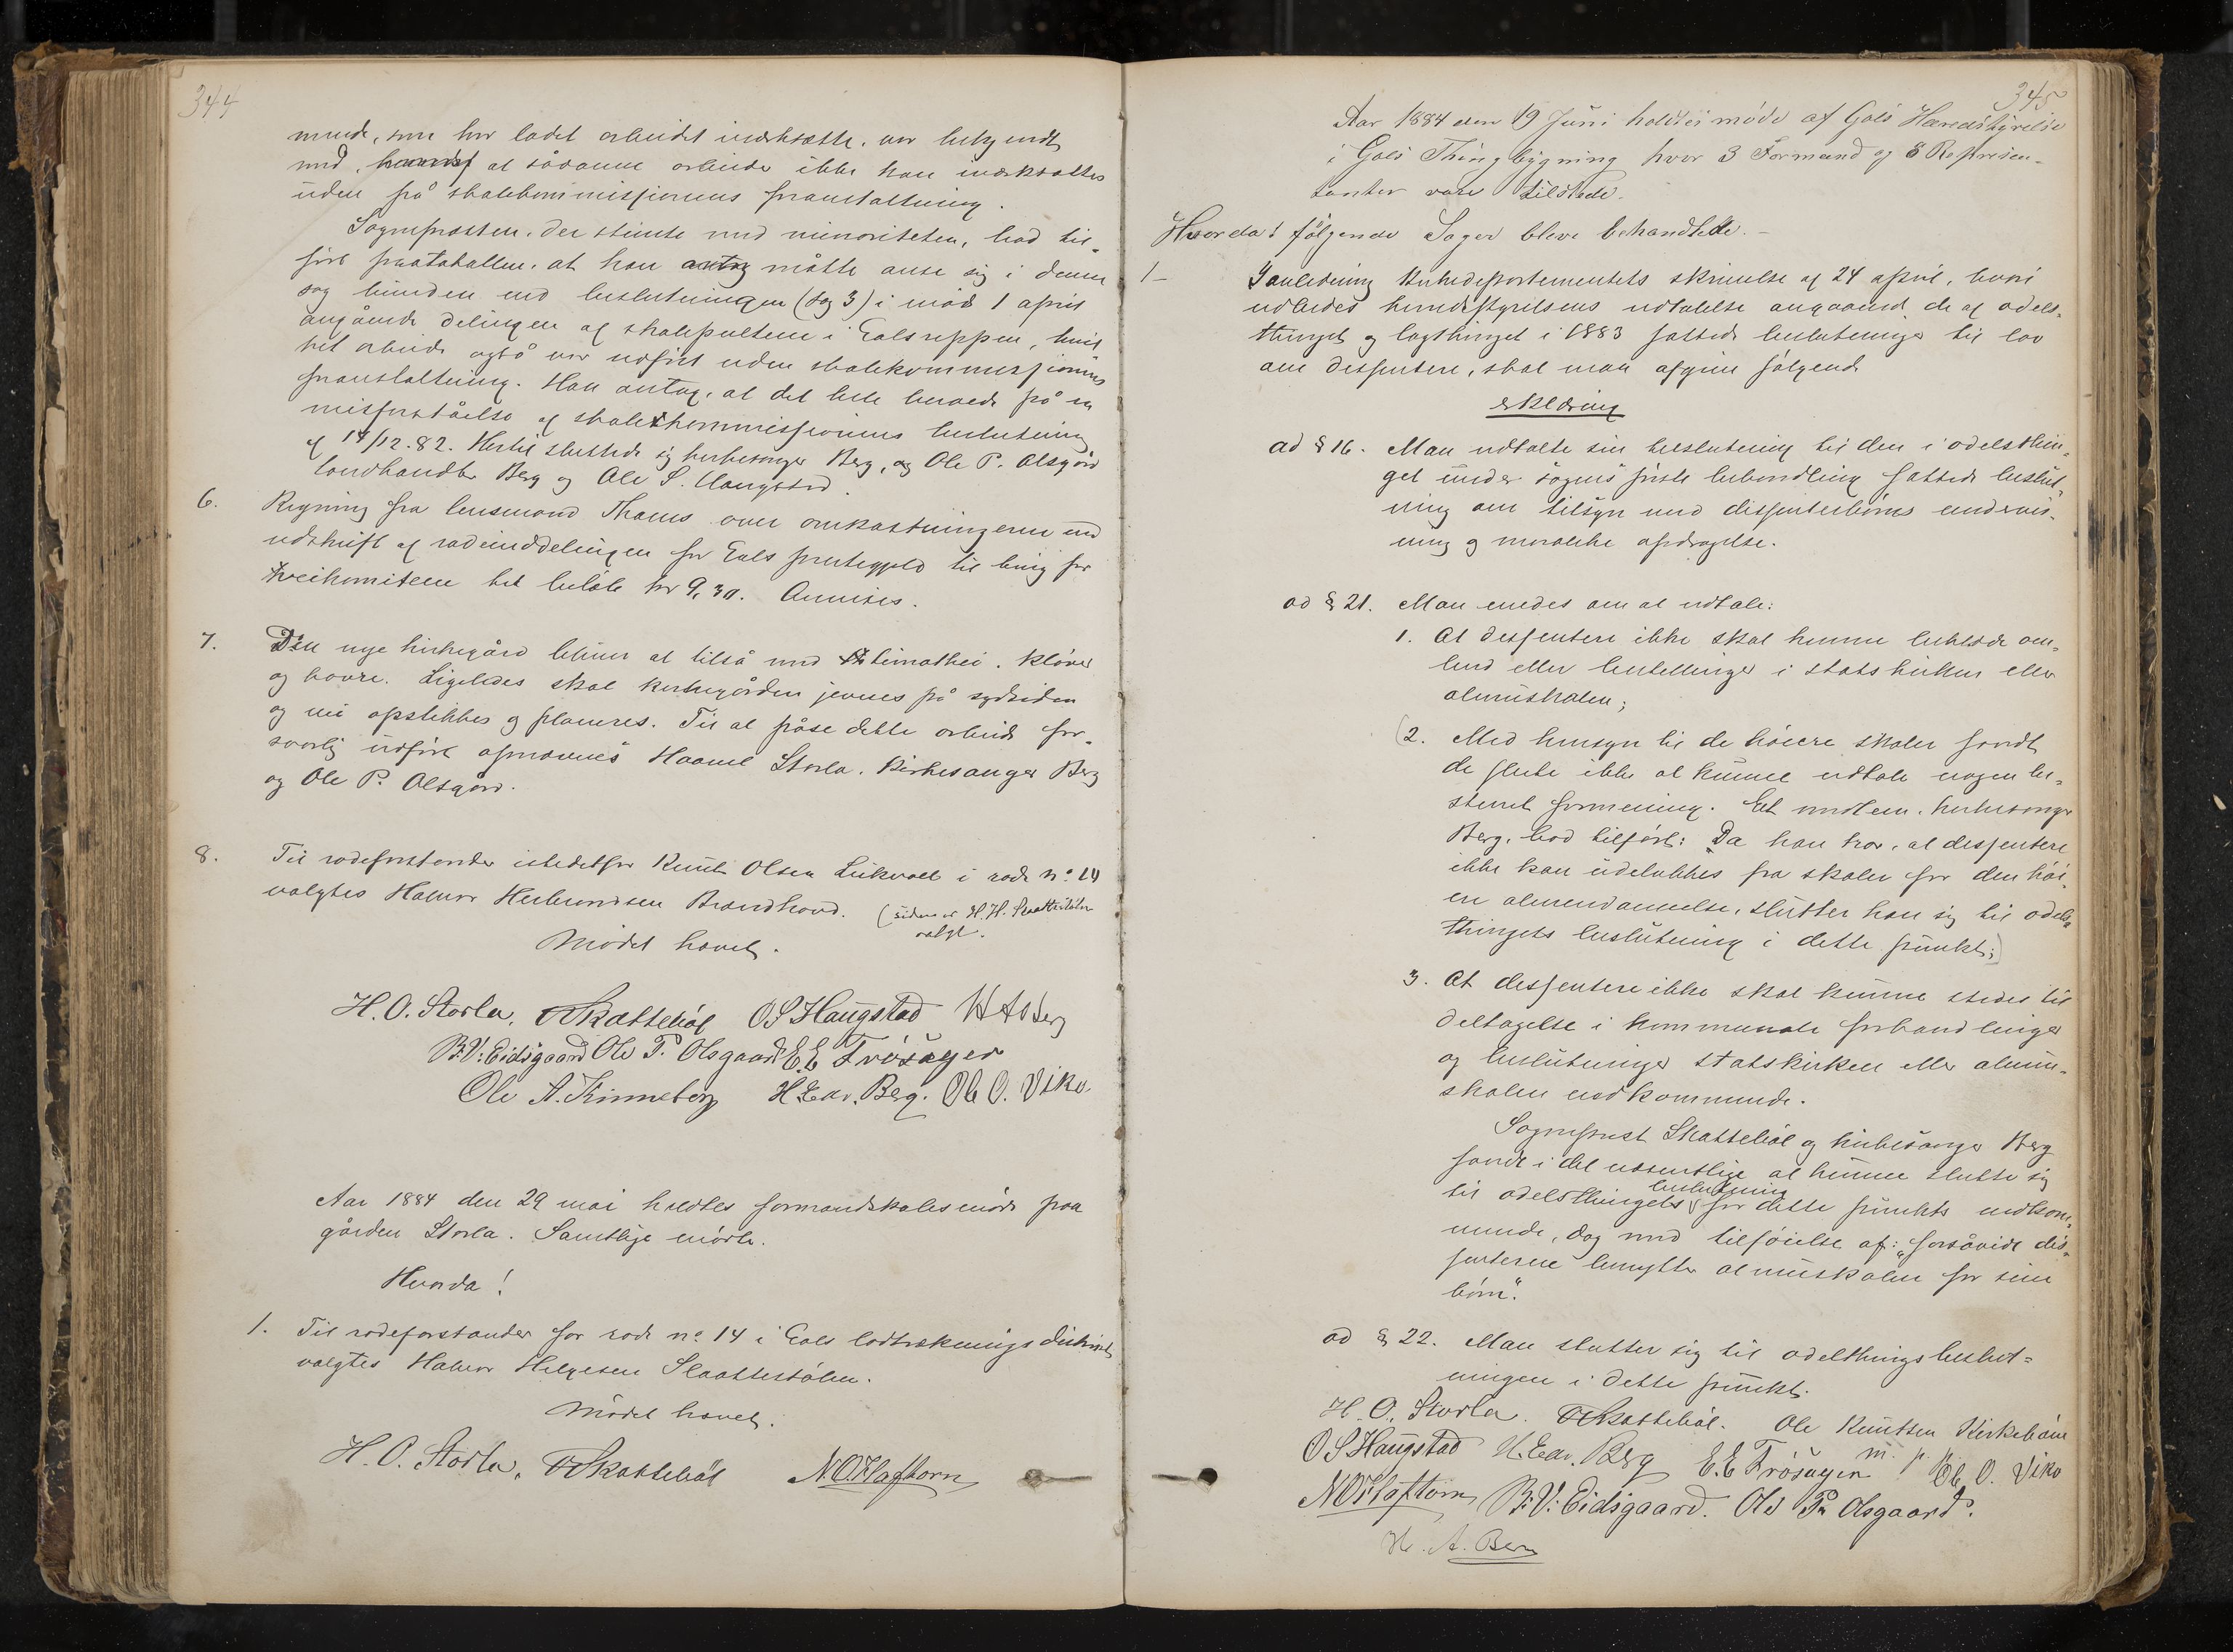 344
mænde, som har ladet arbeidet iværksætte, var bekjendt
med, at sådanne arbeider ikke kan iværksættes
uden på skolekommissionens foranstaltning.
Sognepresten, der stemte med minoriteten, bad til-
ført protokollen, at han måtte anse sig i denne
sag bunden ved beslutningen (sag 3) i møde 1 april
angående delingen af skolepultene i Golsreppen, hvil-
ket arbeide også var udført uden skolekommissionens
foranstaltning. Han antog, at det hele beroede på en
misforståelse af skolekommissionens beslutning
af 14/12.82. Hertil sluttede sig kirkesanger Berg, og Ole P. Olsgård
landhandler Berg og Ole S. Haugstad.
6. Regning fra lensmand Thams over omkastningerne ved
udskrift af rodeinddelingen for Gols prestegjeld til brug for
veikomiteen stor beløb kr 9,30. Anvises.
7. Den nye kirkegård bliver at tilså med timothei, kløver
og havre. Ligeledes skal kirkegården jevnes på sydsiden
og vei opstikkes og planeres. Til at påse dette arbeide for-
svarlig udført opnævnes Haavel Storla, Kirkesanger Berg
og Ole P. Olsgård.
8. Til rodeforstander istedetfor Knut Olsen Liekvæl i rode no. 14
valgtes Halvor Herbrandsen Brandhovd. (siden er H. H. Slaattestølen
valgt.
Mødet hævet.
H. O. Storla, OSkattebøl OSHaugstad HABerg
B.V: Eidsgaard Ole P. Olsgaard E.E Trøsager
Ole A. Kinneberg H. Edv. Berg. Ole O. Viko.
Aar 1884 den 29 mai holdtes formandskabsmøde paa
gården Storla. Samtlige mødte.
Hvorda!
1. Til rodeforstander for rode no. 14 i Gols lodtrækningsdistrikt
valgtes Halvor Helgesen Slaattestølen.
Mødet hævet.
H. O. Storla, OSkattebøl N.O.Haftorn
345
Aar 1884 den 19 Juni holdtes møde af Gols Heredstyrelse
i Gols Thingbygning hvor 3 Formænd og 8 Represen-
tanter vare tilstede.
Hvorda! følgende Sager bleve behandlede. -
1- I anledning Kirkedepartementets skrivelse af 24 april, hvori
udbedes herredsstyrelsens udtalelse angaaende de af odels-
thinget og lagthinget i 1883 fattede beslutninger til lov
om dissentere, skal man afgive følgende
erklæring
ad § 16. Man udtalte sin tilslutning til den i odelsthin-
get under sagens første behandling fattede beslut-
ning om tilsyn med dissenterbørns undervis-
ning og moralske opdragelse.
ad § 21. Man enedes om at udtale:
1. At dissentere ikke skal kunne beklæde em-
bed eller bestillinger i statskirken eller
almuskolen;
(2. Med hensyn til de høiere skoler fandt
de fleste ikke at kunne udtale nogen be-
stemt formening. Et medlem, kirkesanger
Berg, bad tilført: Da han tror, at dissentere
ikke kan udelukkes fra skoler for den høi-
ere almendannelse, slutter han sig til odels-
thingets beslutning i dette punkt;)
3. At dissentere ikke skal kunne stedes til
deltagelse i kommunale forhandlinger
og beslutninger statskirken eller almu-
skolen vedkommende.
Sogneprest Skattebøl og kirkesanger Berg
fandt i det væsentlige at kunne slutte sig
til odelsthingets beslutning for dette punkts vedkom-
mende, dog med tilføielse af: "forsåvidt dis-
senterne benytter almuskolen for sine
børn".
ad § 22. Man slutter sig til odelsthingsbeslut-
ningen i dette punkt.
H. O. Storla. OSkattebøl. Ole Knutsen Kirkebøen
OSHaugstad H. Edv. Berg E.E Trøsagen m. p. P. Ole O. Viko
N.O.Haftorn B:V: Eidsgaard. Ole Pr Olsgaard.
H. A. Berg